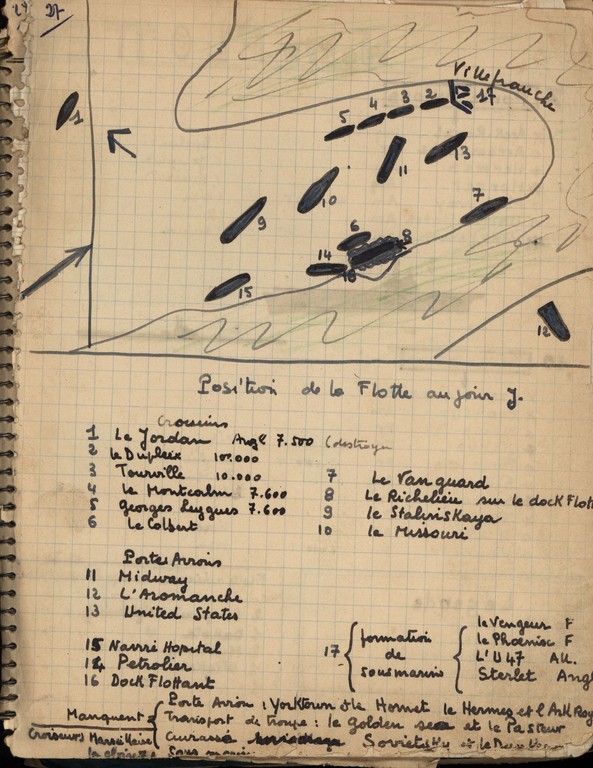 27
Villefranche
1
5
4
3
2
17
13
11
10
7
9
6
8
14
16
15
12
Position de la Flotte au jour J.
Croiseurs
1 Le Jordan Angl 7.500
2 le Dupleix 10.000
3 Tourville 10.000
4 le Montcalm 7.600
5 georges Leygues 7.600
6 le Colbert
7 Le Vanguard
8 Le Richelieu sur le dock Flott
9 le Staliniskaya
10 le Missouri
Portes Avions
11 Midway
12 L'Aromanche
13 United States
15 Navire Hopital
14 Petrolier
16 Dock Flottant
17 formation de sousmarins
le Vengeur F
le Phoenise F
L'U 47 All.
Sterlet Angl
Manquent
Porte Avion : Yorktown et le Hornet le Hermes et l'Ark Roy
Transport de troupe : le golden sea et le Pasteur
cuirassé Sovietsky et le
Croiseurs Marseillaise
sous marin